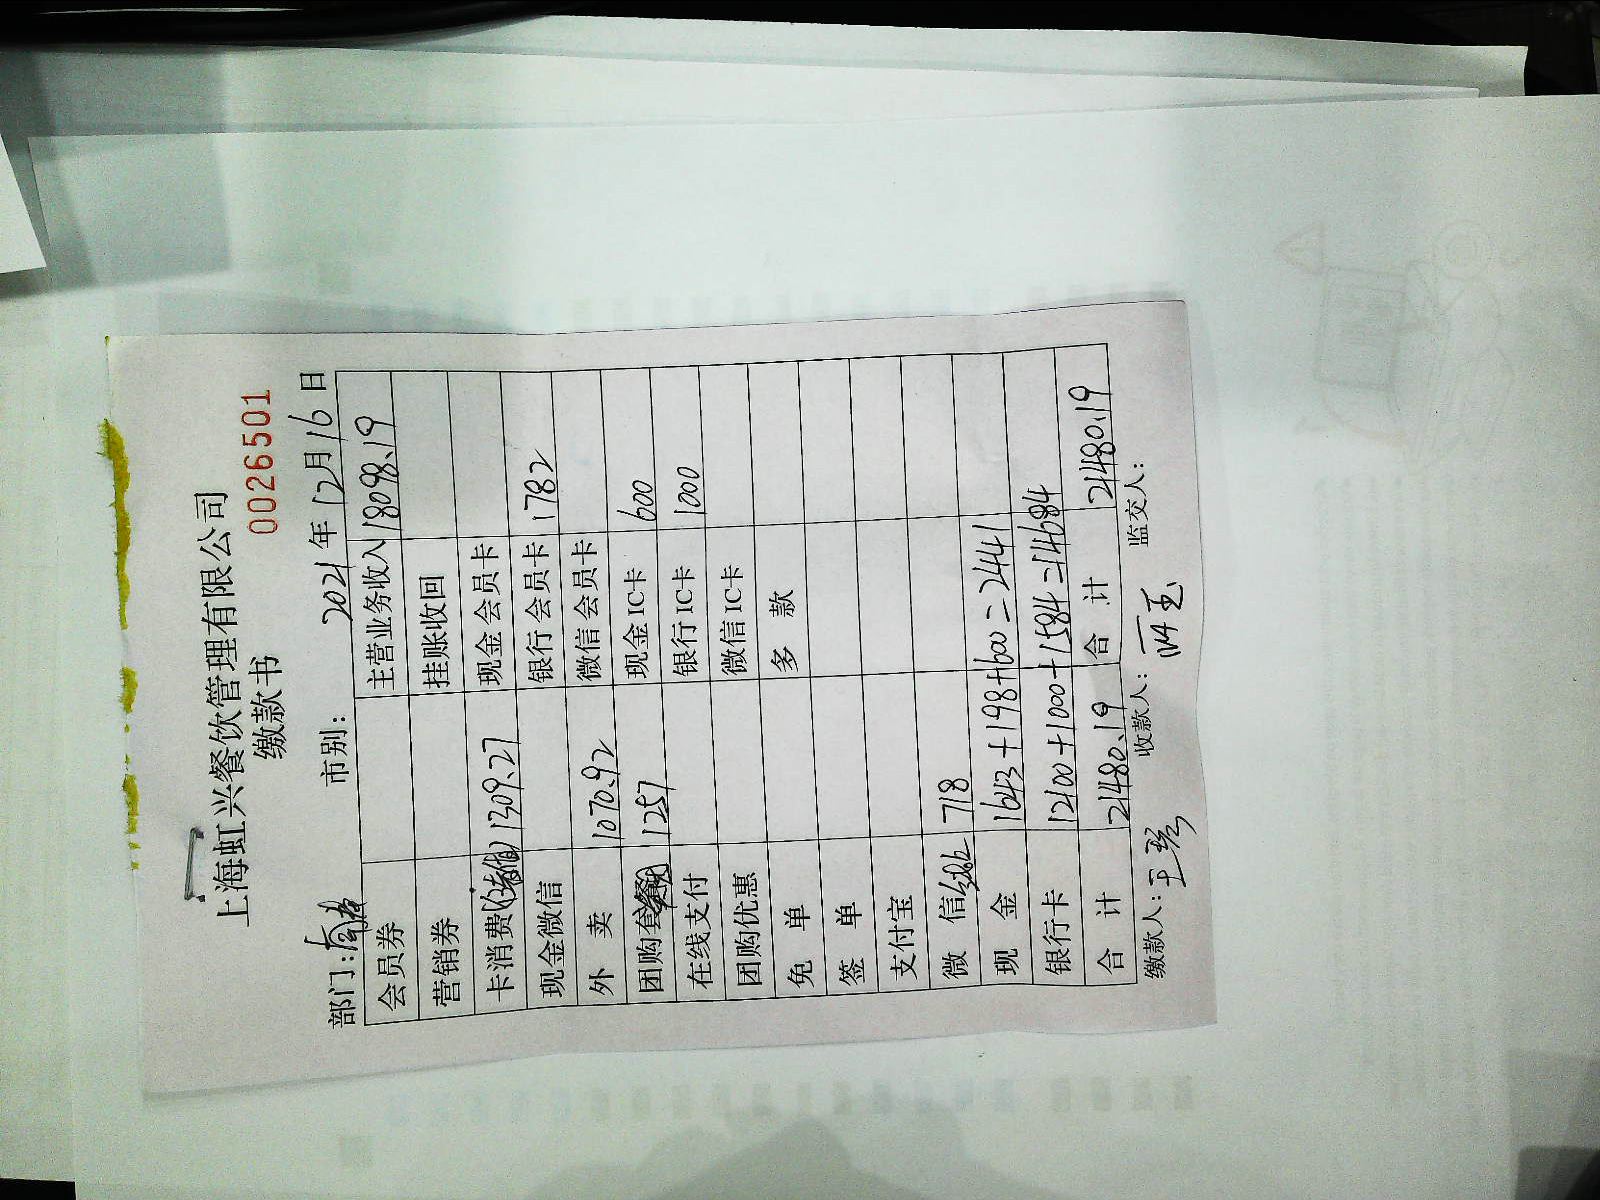 上海虹兴餐饮管理有限公司
缴款书 0026501
部门: 市别: 2021年12月16日
会员券 主营业务收入 18098.19
营销券 挂账收回
卡消费 1309.27 现金会员卡
现金微信 银行会员卡 1782
外卖 1070.92 微信会员卡
团购套餐 1257 现金IC卡 600
在线支付 银行IC卡 1000
团购优惠 微信IC卡
免单 多款
签单
支付宝
微信 718
现金 1643+198+600=2441
银行卡 12100+1000+1584=14684
合计 21480.19 合计 21480.19
缴款人: 收款人: 监交人: